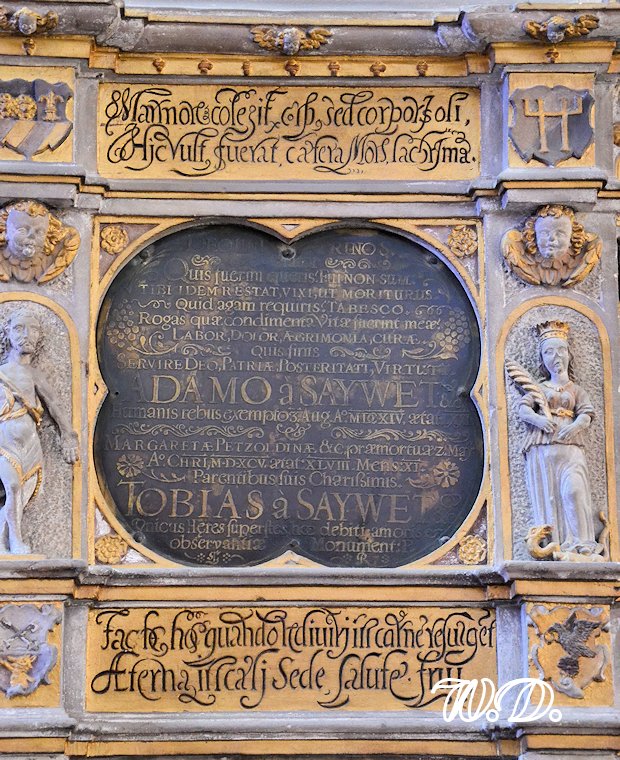 Marmore colegit, sed corpora soli,
Hic vult, fuerat, cætera Mors, lachrÿma.
Quis fuerim quæris? fui non sum
TIBI IDEM RESTAT, VIXI, UT MORITURUS.
Quid agam requiris? TABESCO.
Rogas quæ condimenta Vitæ fuerint meæ?
LABOR, DOLOR, ÆGRIMONIA, CURÆ
Quis finis
SERVIRE DEO, PATRIÆ, POSTERITATI, VIRTUTI
ADAMO à SAYWET
Humanis rebus exempto 3 Aug. Aº
MARGARETÆ PETZOLDINÆ &c. præmortuæ
Aº CHRI. M.D.XCV. ætat. XLVIII. Mens. XI.
Parentibus suis Charissimis.
TOBIAS à SAYWET
Unicus Heres superstes hoc debiti amoris
observantiæ Monument: P.
Fac hos quando redivivi in carne resurget
Æterna in cælj Sede, salute frui
W.D.